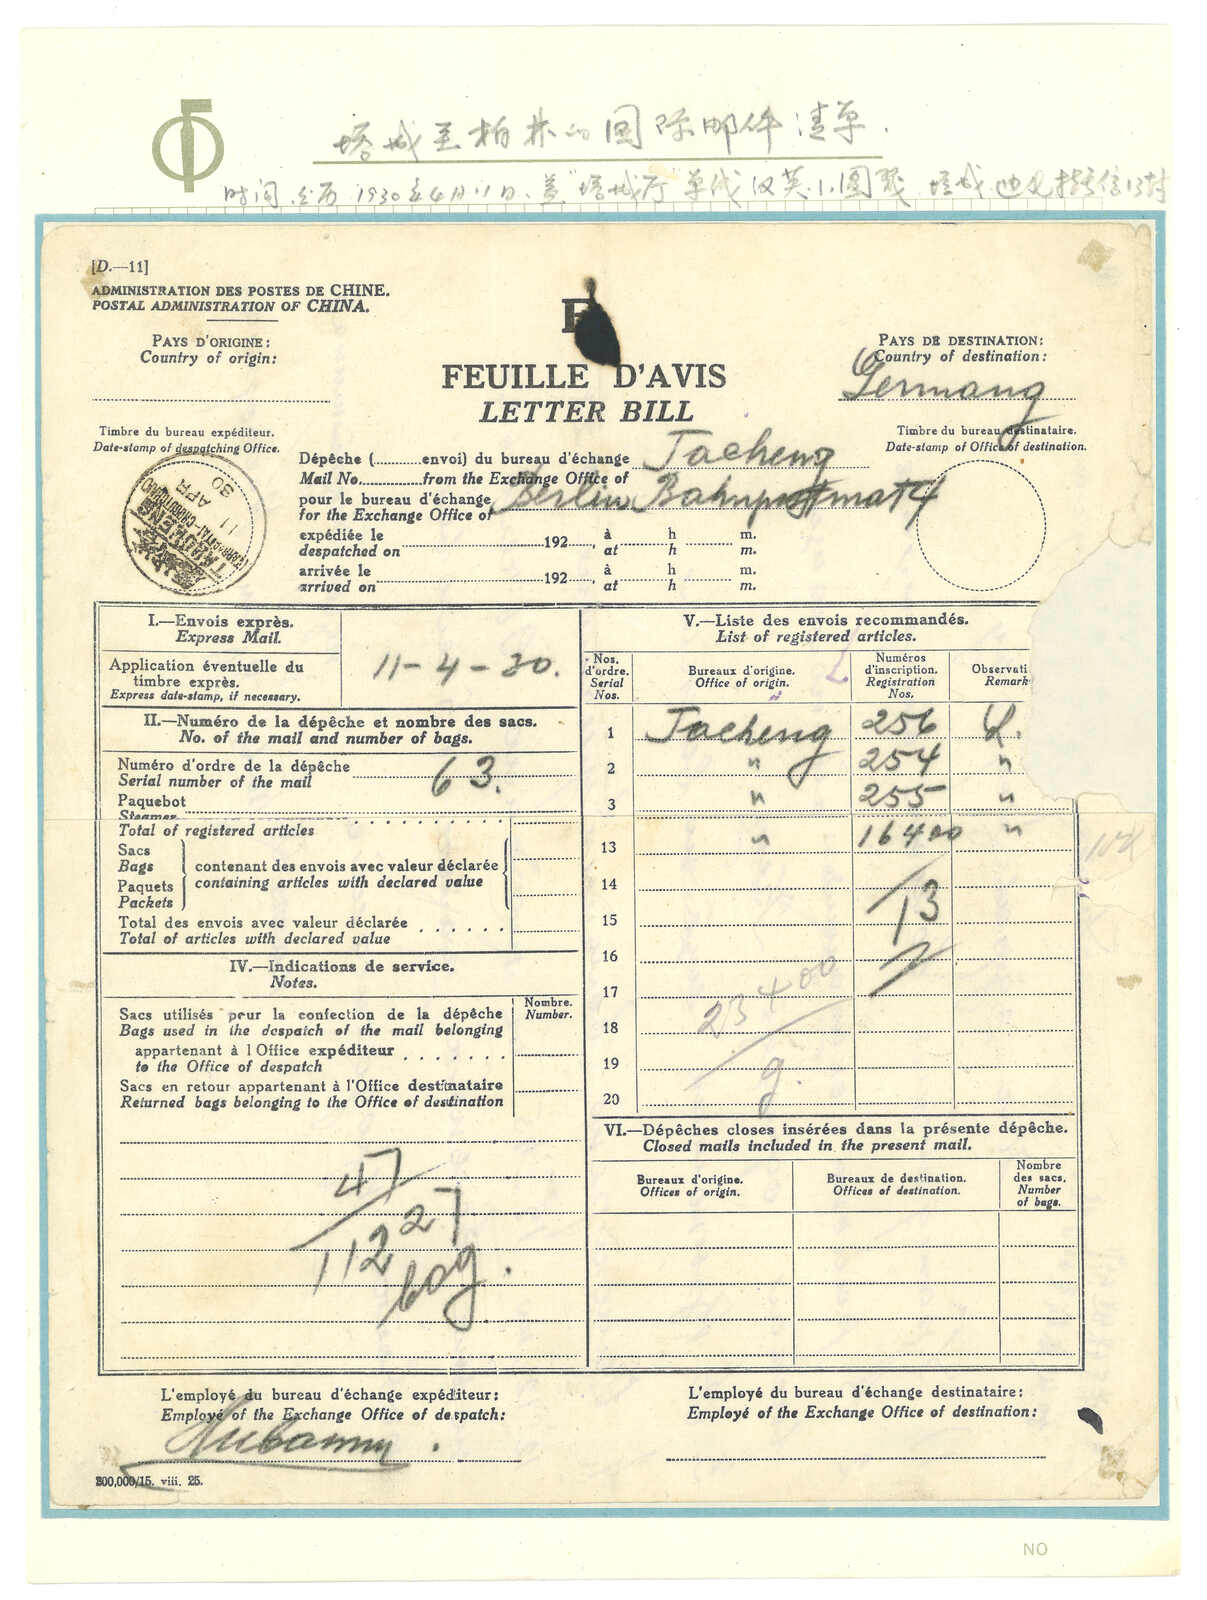 塔城至柏林的国际邮件清单.
时间.公历1930年4月11日.盖"塔城厅"单线汉英小圆戳 塔城
[D.—11]
ADMINISTRATION DES POSTES DE CHINE.
POSTAL ADMINISTRATION OF CHINA.
PAYS D'ORIGINE:
Country of origin:
PAYS DE DESTINATION:
Country of destination:
Germany
FEUILLE D'AVIS
LETTER BILL
Timbre du bureau expéditeur.
Date-stamp of despatching Office.
Timbre du bureau destinataire.
Date-stamp of Office of destination.
11 APR 30
Dépêche (...........envoi) du bureau d'échange Tacheng
Mail No..............from the Exchange Office of
pour le bureau d'échange Berlin Bahnpostmat 4
for the Exchange Office of
expédiée le 192 , à h m.
despatched on at h m.
arrivée le 192 , à h m.
arrived on at h m.
I.—Envois exprès.
Express Mail.
Application éventuelle du
timbre exprès.
Express date-stamp, if necessary.
11-4-30.
II.—Numéro de la dépêche et nombre des sacs.
No. of the mail and number of bags.
Numéro d'ordre de la dépêche
Serial number of the mail 63.
Paquebot
Steamer
Total of registered articles
Sacs
Bags
Paquets
Packets
contenant des envois avec valeur déclarée
containing articles with declared value
Total des envois avec valeur déclarée . . . . . .
Total of articles with declared value
IV.—Indications de service.
Notes.
Nombre.
Number.
Sacs utilisés pour la confection de la dépêche
Bags used in the despatch of the mail belonging
appartenant à l Office expéditeur . . . . . . .
to the Office of despatch
Sacs en retour appartenant à l'Office destinataire
Returned bags belonging to the Office of destination
47
112 27
bag.
V.—Liste des envois recommandés.
List of registered articles.
Nos. d'ordre. Serial Nos.
Bureaux d'origine. Office of origin.
Numéros d'inscription. Registration Nos.
Observati
Remark
1 Tacheng 256 L.
2 " 254 "
3 " 255 "
13 " 16400 "
14
15 13
16
17
18 23400
19 g.
20
VI.—Dépêches closes insérées dans la présente dépêche.
Closed mails included in the present mail.
Bureaux d'origine.
Offices of origin.
Bureaux de destination.
Offices of destination.
Nombre
des sacs.
Number
of bags.
L'employé du bureau d'échange expéditeur:
Employé of the Exchange Office of despatch:
L'employé du bureau d'échange destinataire:
Employé of the Exchange Office of destination:
300,000/15. viii. 25.
NO